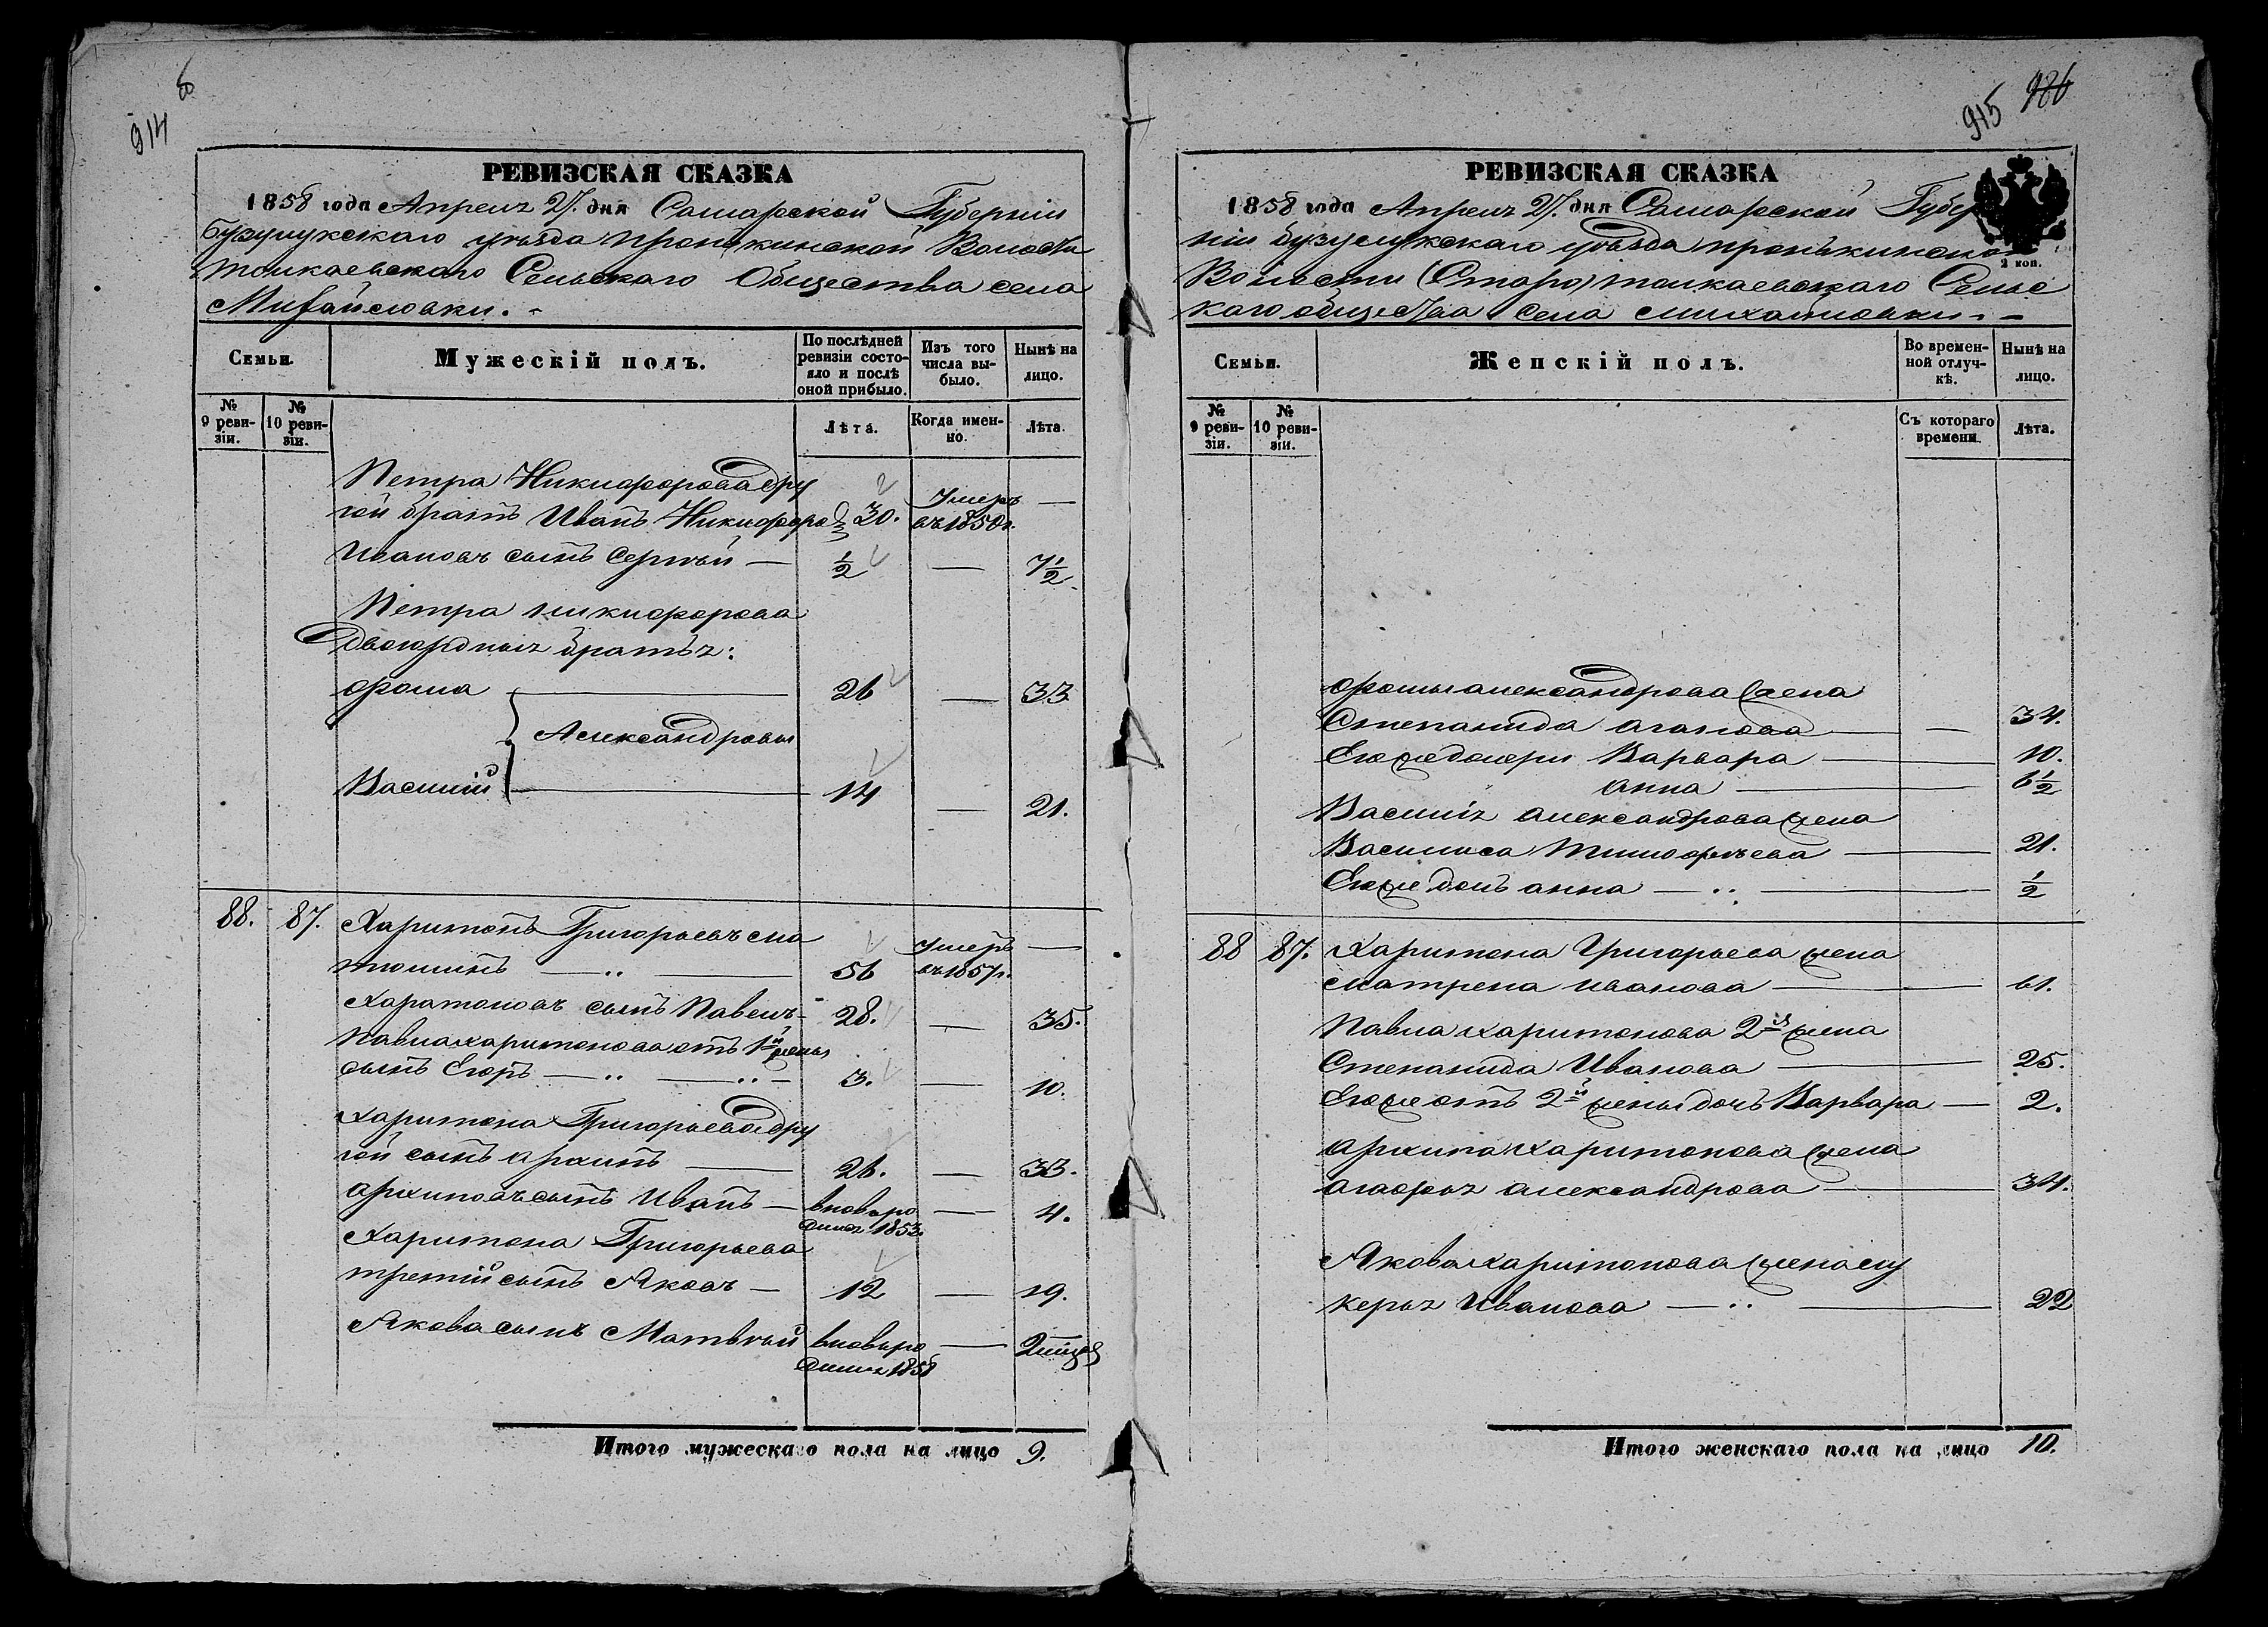 914
РЕВИЗСКАЯ СКАЗКА
1858 года Апреля 27. дня Самарской Губерніи
Бузулукскаго уѣзда Пронькинской Волости
Толкаевскаго Сельскаго Общества села
Михайловки. -
Семьи.
Мужескій полъ.
По послѣдней ревизіи состояло и послѣ оной прибыло.
Изъ того числа выбыло.
Ныне на лицо.
№ 9 ревизіи.
№ 10 ревизіи.
Лѣта.
Когда именно.
Лѣта.
Петра Никифорова дру
гой братъ Иванъ Никифоровъ 30. Умеръ въ 1850г. —
Ивановъ сынъ Сергѣй — ½ — 7½
Петра Никифорова
двоюродныя братья:
Фома — 26 — 33
Александровы
Василій — 14 — 21.
88. 87. Харитонъ Григорьевъ
56 умеръ въ 1857г. —
Харитоновъ сынъ Павелъ - 28. — 35.
Павла Харитонова отъ 1й жены
сынъ Егоръ — 3. — 10.
Харитона Григорьева дру
гой сынъ Архипъ — 26. — 33.
Архиповъ сынъ Иванъ — вновьро — 4.
дился 1853.
Харитона Григорьева
третій сынъ Яковъ — 12 — 19.
Якова сынъ Матвѣй вновьро —
дился 1858
Итого мужескаго пола на лицо 9.
915 986
РЕВИЗСКАЯ СКАЗКА
1858 года Апреля 27. дня Самарской Губер
ніи Бузулукскаго уѣзда Пронькинской
2 коп.
Волости (Старо) Толкаевскаго Сельс
каго общества села Михайловки. -
Семьи.
Женскій полъ.
Во временной отлучкѣ.
Нынѣ на лицо.
№ 9 ревизіи.
№ 10 ревизіи.
Съ котораго времени.
Лѣта.
Фомы Александрова жена
Степанида Агапова — — 34.
Егоже дочери Варвара — 10.
Анна — 6½
Василія Александрова жена
Василиса Тимофѣева — 21.
Егоже дочь Анна — ½
88 87. Харитона Григорьева жена
Матрена Иванова — 61.
Павла Харитонова 2я жена
Степанида Иванова — 25.
Егоже отъ 2й жены дочь Варвара — 2.
Архипа Харитонова жена
Агафья Александрова — 34.
Якова Харитонова жена Лу
керья Иванова — 22
Итого женскаго пола на лицо 10.